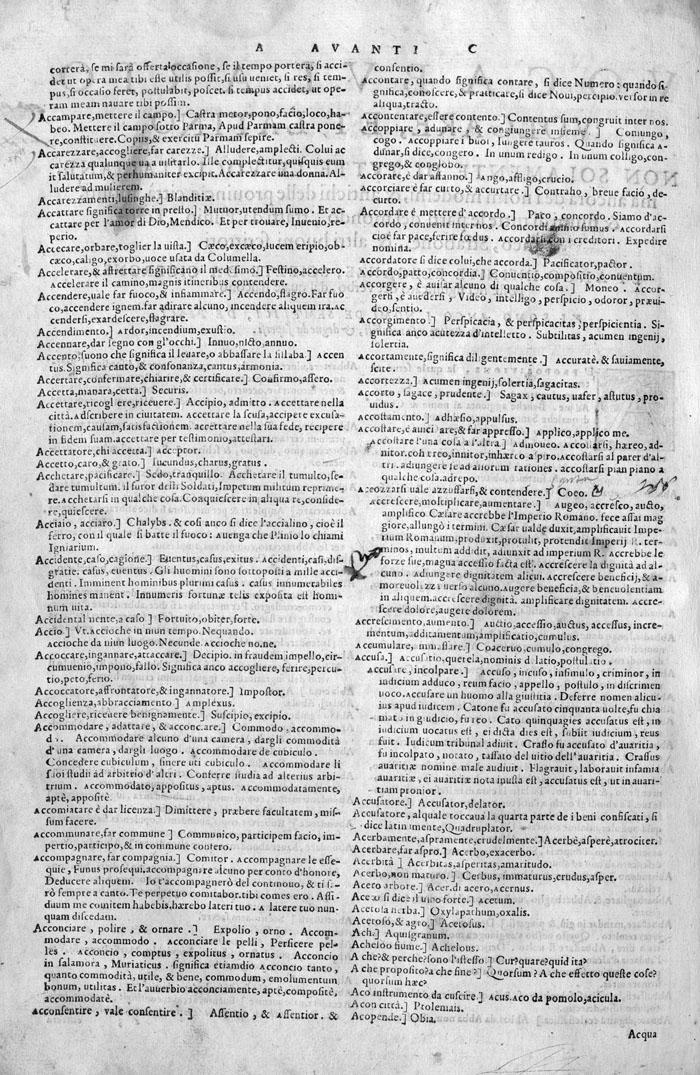 A AVANTI C
correrà, se mi sarà offerta l'occasione, se il tempo porterà, si acci
det ut opera mea tibi esse utilis possit, si usu ueniet, si res, si tem-
pus, si occasio feret, postulabit, poscet. si tempus accidet, ut ope-
ram meam nauare tibi possim.
Accampare, mettere il campo.] Castra metor, pono, facio, loco, ha-
beo. Mettere il campo sotto Parma, Apud Parmam castra pone-
re, constituere. Copijs, & exercitu Parmam sepire.
Accarezzare, accogliere, far carezze.] Alludere, amplecti. Colui ac
carezza qualunque ua a uisitarlo. Ille complectitur, quisquis eum
it salutatum, & perhumaniter excipit. Accarezzare una donna. Al-
ludere ad mulierem.
Accarezzamenti, lusinghe.] Blanditiæ.
Accattare significa torre in presto.] Mutuor, utendum sumo. Et ac-
cattare per l'amor di Dio, Mendico. Et per trouare, Inuenio, re-
perio.
Accecare, orbare, toglier la uista.] Cæco, excæco, lucem eripio, ob-
cæco, caligo, exorbo, uoce usata da Columella.
Accelerare, & affrettare significano il medesimo.] Festino, accelero.
Accelerare il camino, magnis itineribus contendere.
Accendere, uale far fuoco, & infiammare.] Accendo, flagro. Far fuo
co, accendere ignem. far adirare alcuno, incendere aliquem ira. Ac
cendersi, exardescere, flagrare.
Accendimento.] Ardor, incendium, exustio.
Accennare, dar segno con gl'occhi.] Innuo, nicto, annuo.
Accento; suono che significa il leuare, o abbassare la sillaba.] Accen
tus. Significa canto, & consonanza, cantus, armonia.
Accertare, confermare, chiarire, & certificare.] Confirmo, assero.
Accetta, manara, cetta.] Securis.
Accettare, ricogliere, riceuere.] Accipio, admitto. Accettare nella
città. Adscribere in ciuitatem. Accettare la scusa, accipere excusa-
tionem, causam, satisfactionem. accettare nella sua fede, recipere
in fidem suam. accettare per testimonio, attestari.
Accettatore, chi accetta.] Acceptor.
Accetto, caro, & grato.] Iucundus, charus, gratus.
Acchetare, pacificare.] Sedo, tranquillo. Acchetare il tumulto, seda-
re tumultum. il furor delli Soldati, Impetum multum reprime-
re. Acchetarsi in qualche cosa. Conquiescere in aliqua re, conside-
re, quiescere.
Acciaio, acciaro.] Chalybs. & cosi anco si dice l'accialino, cioè il
ferro, con il quale si batte il fuoco: Auenga che Plinio lo chiami
Igniarium.
Accidente, caso, cagione.] Euentus, casus, exitus. Accidenti, casi, dis-
gratie. casus, euentus. Gli huomini sono sottoposti a mille acci-
denti. Imminent hominibus plurimi casus. casus innumerabiles
homines manent. Innumeris fortunæ telis exposita est homi-
num uita.
Accidentalmente, a caso.] Fortuito, obiter, forte.
Accio] Vt. Accioche in niun tempo. Nequando.
Accioche da niun luogo. Necunde. Accioche no. ne.
Accoccare, ingannare, attaccare.] Decipio. in fraudem impello, cir-
cumuenio, impono, fallo. Significa anco accogliere, ferire, percu-
tio, peto, ferio.
Accoccatore, affrontatore, & ingannatore.] Impostor.
Accoglienza, abbracciamento.] Amplexus.
Accogliere, riceuere benignamente.] Suscipio, excipio.
Accommodare, adattare, & acconciare.] Commodo, accommo-
do. Accommodare alcuno d'una camera, dargli commodità
d'una camera, dargli luogo. Accommodare de cubiculo.
Concedere cubiculum, sinere uti cubiculo. Accommodare li
suoi studi ad arbitrio d'altri. Conferre studia ad alterius arbi-
trium. Accommodato, appositus, aptus. Accommodatamente,
aptè, appositè.
Accomiatare è dar licenza.] Dimittere, præbere facultatem, mis-
sum facere.
Accommunare, far commune] Communico, participem facio, im-
pertio, participo, & in commune confero.
Accompagnare, far compagnia.] Comitor. Accompagnare le esse-
quie, Funus prosequi. accompagnare alcuno per conto d'honore,
Deducere aliquem. Io t'accompagnerò del continouo, & ti sa-
rò sempre a canto. Te perpetuo comitabor. tibi comes ero. Assi-
duum me comitem habebis. hærebo lateri tuo. A latere tuo nun-
quam discedam.
Acconciare, polire, & ornare.] Expolio, orno. Accom-
modare, accommodo. Acconciare le pelli, Persicere pel-
les. Acconcio, comptus, expolitus, ornatus. Acconcio
in salamora, Muriaticus. significa etiamdio acconcio tanto,
quanto commodità, utile, & bene, commodum, emolumentum
bonum, utilitas. Et l'auuerbio acconciamente, aptè, compositè,
accommodatè.
Acconsentire, vale consentire.] Assentio, & assentior. &
consentio.
Accontare, quando significa contare, si dice Numero: quando si-
gnifica, conoscere, & pratticare, si dice Noui, percipio. versor in re
aliqua, tracto.
Accontentare, essere contento.] Contentus sum, congruit inter nos.
Accoppiare, adunare, & congiungere insieme.] Coniungo,
cogo. Accoppiare i buoi, Iungere tauros. Quando significa a-
dunar, si dice, congero. In unum redigo. In unum colligo, con-
grego, & conglobo.
Accorare, è dar affanno.] Ango, affligo, crucio.
Accorciare è far curto, & accurtare.] Contraho, breue facio, de-
curto.
Accordare è mettere d'accordo.] Paco, concordo. Siamo d'ac-
cordo, conuenit inter nos. Concordi animo sumus. Accordarsi
cioè far pace, ferire fœdus. Accordarsi con i creditori. Expedire
nomina.
Accordatore si dice colui, che accorda.] Pacificator, pactor.
Accordo, patto, concordia.] Conuentio, compositio, conuentum.
Accorgere, è auisar alcuno di qualche cosa.] Moneo. Accor-
gersi, è auedersi, Video, intelligo, perspicio, odoror, præui-
deo, sentio.
Accorgimento.] Perspicacia, & perspicacitas, perspicientia. Si-
gnifica anco acutezza d'intelletto. Subtilitas, acumen ingenij,
solertia.
Accortamente, significa diligentemente.] Accuratè. & sauiamente,
scitè.
Accortezza.] Acumen ingenij, solertia, sagacitas.
Accorto, sagace, prudente.] Sagax, cautus, uafer, astutus, pro-
uidus.
Accostamento.] Adhæsio, appulsus.
Accostare, è auicinare, & far appresso.] Applico, applico me.
Accostare l'una cosa a l'altra.] Admoueo. Accostarsi, hæreo, ad-
nitor. coherreo, innitor, inhæreo. Accostarsi al parer d'al-
tri. adiungere se ad aliorum rationes. accostarsi pian piano a
qualche cosa. adrepo.
Accozzarsi uale azzuffarsi, & contendere.] Coeo.
Accrescere, moltiplicare, aumentare.] Augeo, accresco, aucto,
amplifico. Cæsare accrebbe l'Imperio Romano. fece assai mag
giore, allungò i termini. Cæsar ualde auxit, amplificauit Impe-
rium Romanum, produxit, protulit, protendit Imperij R. ter-
minos, multum addidit, adiunxit ad imperium R. Accrebbe le
forze sue, magna accessio facta est. Accrescere la dignità ad al-
cuno. Adiungere dignitatem alicui. Accrescere beneficij, & a-
moreuolezza uerso alcuno. augere beneficia, & beneuolentiam
in aliquem. accrescere dignità. amplificare dignitatem. Accre-
scere dolore, augere dolorem.
Accrescimento, aumento.] Auctio, accessio, auctus, accessus, incre-
mentum, additamentum, amplificatio, cumulus.
Accumulare, ammassare.] Coaceruo, cumulo, congrego.
Accusa.] Accusatio, querela, nominis delatio, postulatio.
Accusare, incolpare.] Accuso, incuso, insimulo, criminor, in
iudicium adduco, reum facio, appello, postulo, in discrimen
uoco. Accusare un huomo alla giustitia. Deferre nomen alicu-
ius apud iudicem. Catone fu accusato cinquanta uolte, fu chia
mato in giudicio, fu reo. Cato quinquagies accusatus est, in
iudicium uocatus est, ei dicta dies est, subijt iudicium, reus
fuit. Iudicum tribunal adiuit. Crasso fu accusato d'auaritia,
fu incolpato, notato, tassato del uitio dell'auaritia. Crassus
auaritiæ nomine male audiuit. Flagrauit, laborauit infamia
auaritiæ, ei auaritiæ nota ipusta est, accusatus est, ut in auari-
tiam pronior.
Accusatore.] Accusator, delator.
Accusatore, alquale toccaua la quarta parte de i beni confiscati, si
dice latinamente, Quadruplator.
Acerbamente, aspramente, crudelmente.] Acerbè, asperè, atrociter.
Acerbare, far aspro.] Acerbo, exacerbo.
Acerbità] Acerbitas, asperitas, amaritudo.
Acerbo, non maturo.] Cerbus, immaturus, crudus, asper.
Acero arbore.] Acer. di acero, acernus.
Aceto si dice il uino forte.] Acetum.
Acetosa herba.] Oxylapathum, oxalis.
Acetoso, & agro.] Acetosus.
Ach.] Aquisgranum.
Acheloo fiume.] Achelous.
A che? & perche? sono l'istesso] Cur? quare? quid ita?
A che proposito? a che fine?] Quorsum? A che effetto queste cose?
quorsum hæc?
Aco instrumento da cuscire] Acus. Aco da pomolo, acicula.
Acon città.] Ptolemais.
Acopende.] Obia.
Acqua